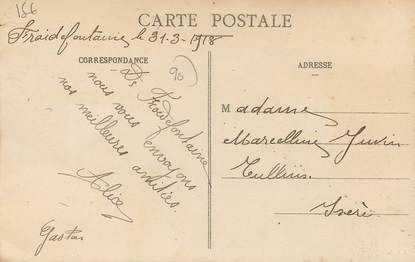 156
CARTE POSTALE
Froidefontaine le 31-3-1918
CORRESPONDANCE
ADRESSE
90
De Froidefontaine
nous vous envoyons
nos meilleures amitiés.
Alice
Gaston
Madame
Marcelline Juvin
Tullins
Isère